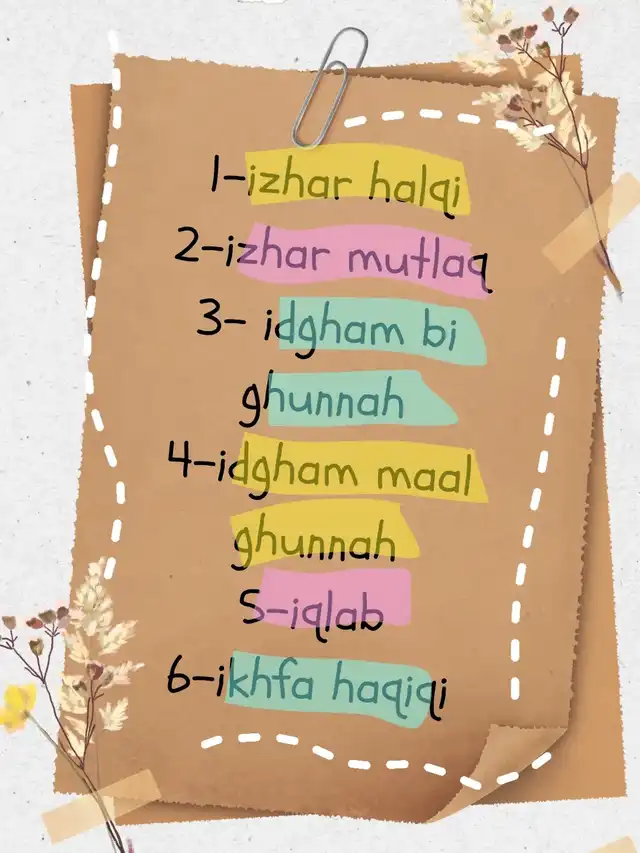 1-izhar halqi
2-izhar mutlaq
3- idgham bi
ghunnah
4-idgham maal
ghunnah
5-iqlab
6-ikhfa haqiqi